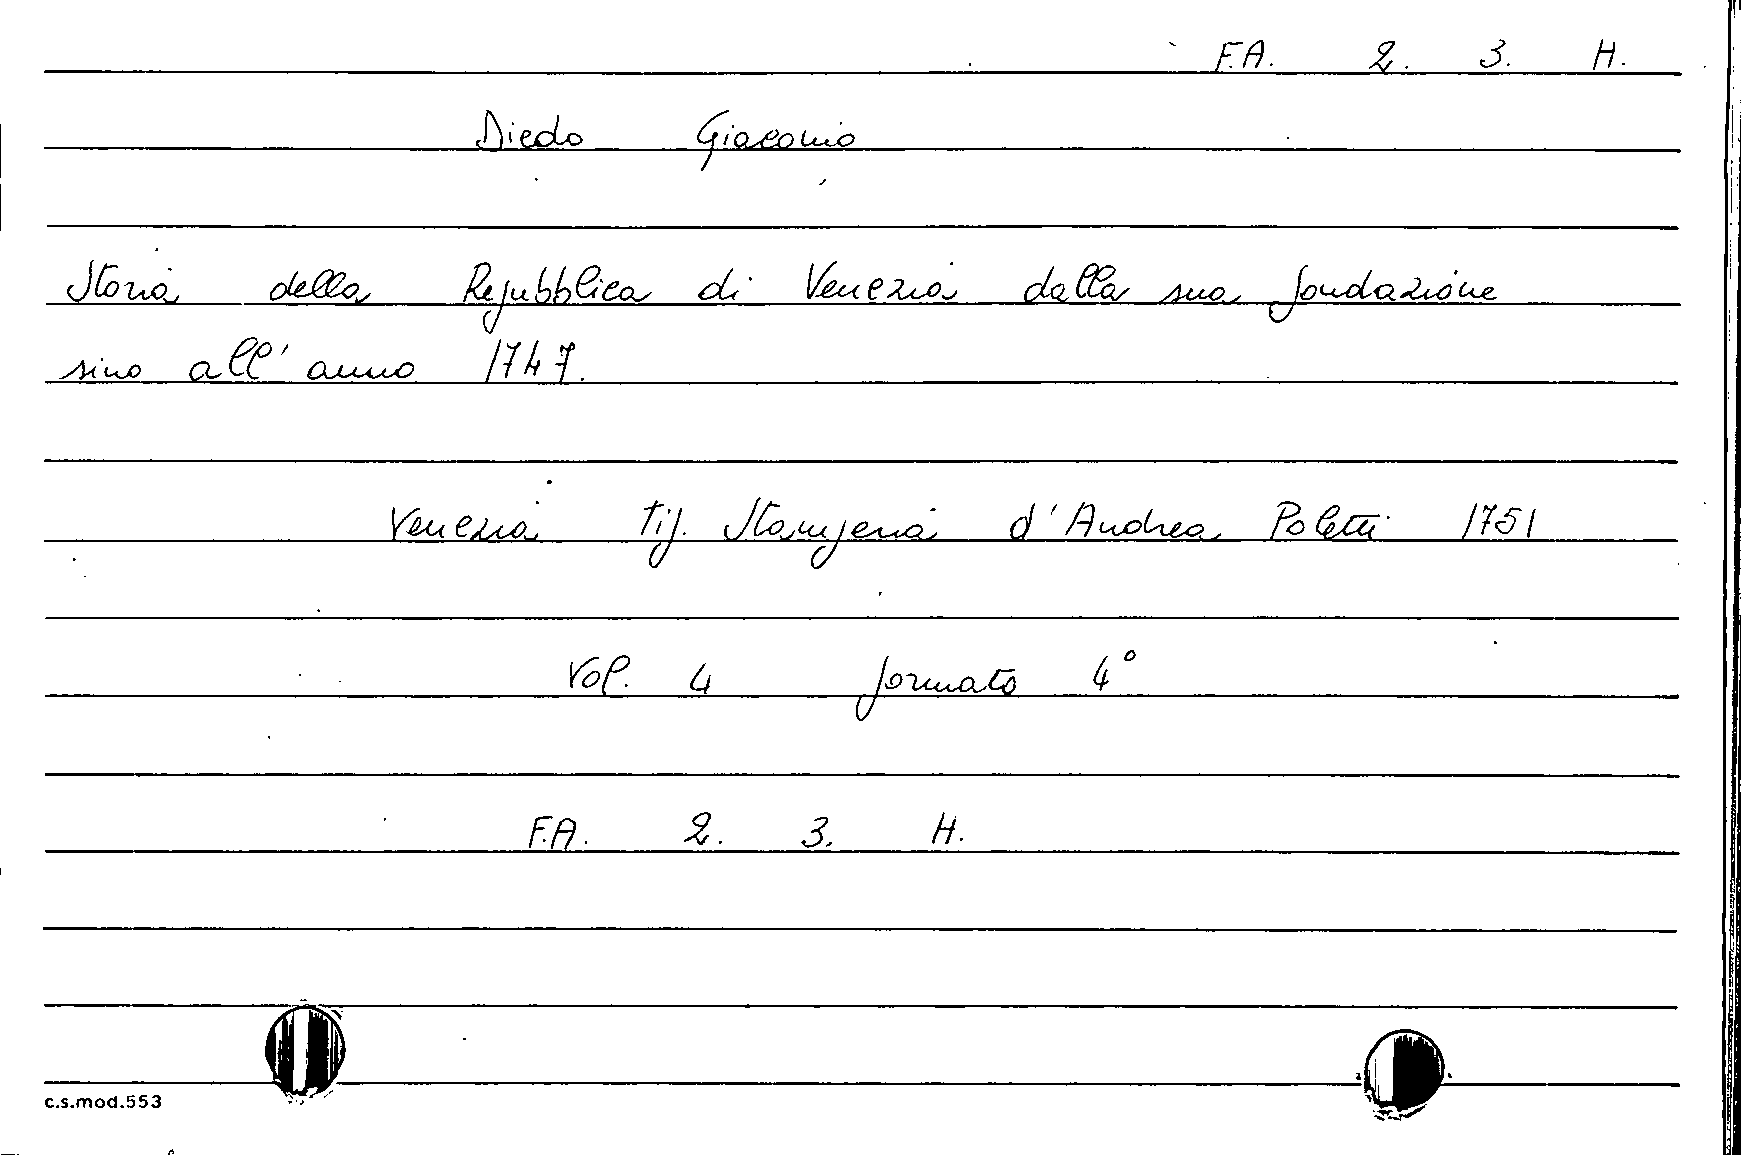 F.A. 2. 3. H.
Diedo Giacomo
Storia della Repubblica di Venezia dalla sua fondazione
sino all' anno 1747.
Venezia Tip. Stamperia d'Andrea Poletti 1751
Vol. 4 formato 4°
F.A. 2. 3. H.
c.s.mod.553